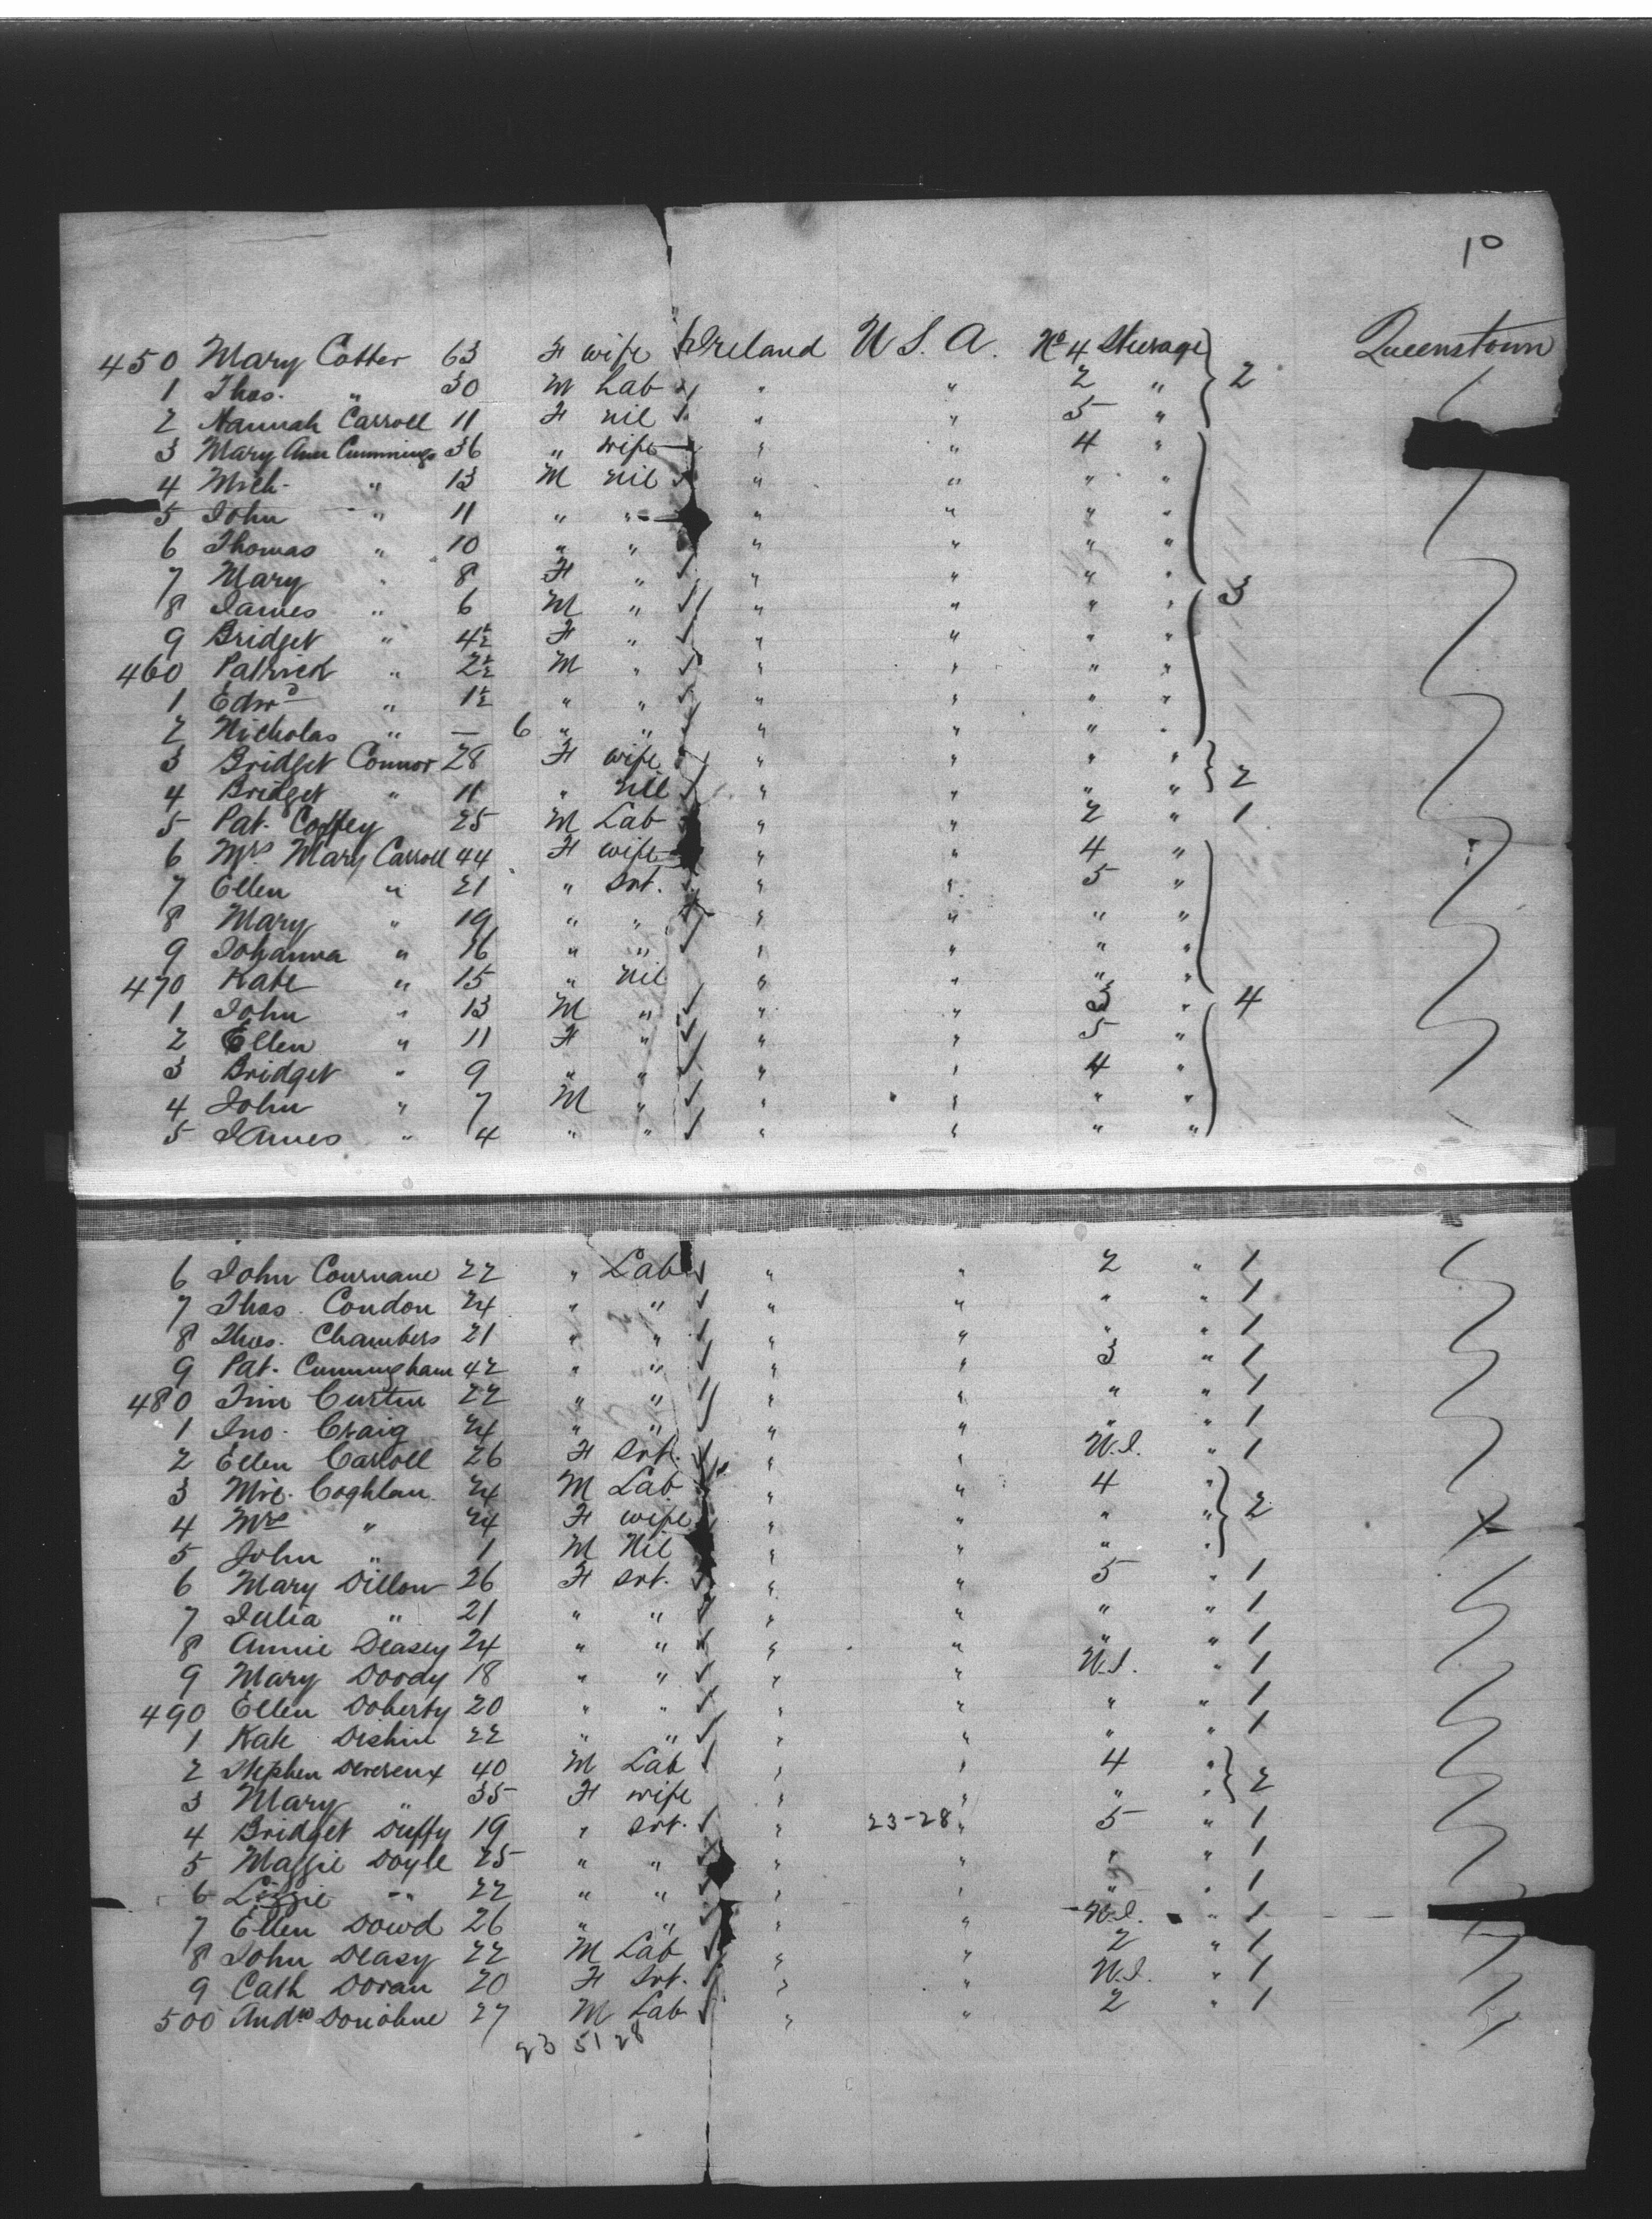 10
450 Mary Cotter 63 F wife Ireland U.S.A. No 4 Steerage 2 Queenstown
1 Thos. " 30 M Lab " " 2 "
2 Hannah Carroll 11 F nil " " 5 "
3 Mary Ann Cummings 36 " wife " " 4 "
4 Mich. " 13 M nil " " " "
5 John " 11 " " " " " "
6 Thomas " 10 " " " " " "
7 Mary " 8 F " " " " "
8 James " 6 M " " " " " 3
9 Bridget " 4½ F " " " " "
460 Patrick " 2½ M " " " " "
1 Edwd " 1½ " " " " " "
2 Nicholas " — 6 " " " " " "
3 Bridget Connor 28 F wife " " " "
4 Bridget " 11 " nil " " " " 2
5 Pat. Coffey 25 M Lab " " 2 " 1
6 Mrs Mary Carroll 44 F wife " " 4 "
7 Ellen " 21 " Svt. " " 5 "
8 Mary " 19 " " " " " "
9 Johanna " 16 " " " " " "
470 Kate " 15 " nil " " " "
1 John " 13 M " " " 3 " 4
2 Ellen " 11 F " " " 5 "
3 Bridget " 9 " " " " 4 "
4 John " 7 M " " " " "
5 James " 4 " " " " " "
6 John Cournane 22 " Lab " " 2 " 1
7 Thos. Condon 24 " " " " " " 1
8 Thos. Chambers 21 " " " " " " 1
9 Pat. Cunningham 42 " " " " 3 " 1
480 Tim Curtin 22 " " " " " " 1
1 Jno. Craig 24 " " " " " " 1
2 Ellen Carroll 26 F Svt. " " U.S. " 1
3 Mic. Coghlan 24 M Lab " " 4 "
4 Mrs " 24 F wife " " " " 2
5 John " 1 M Nil " " " "
6 Mary Dillon 26 F Svt. " " 5 " 1
7 Julia " 21 " " " " " " 1
8 Annie Deasey 24 " " " " " " 1
9 Mary Doody 18 " " " " U.S. " 1
490 Ellen Doherty 20 " " " " " " 1
1 Kate Dishin 22 " " " " " " 1
2 Stephen Devereux 40 M Lab " " 4 "
3 Mary " 35 F wife " " " " 2
4 Bridget Duffy 19 " Svt. " 23-28 " 5 " 1
5 Maggie Doyle 25 " " " " " " 1
6 Lizzie " 22 " " " " " " 1
7 Ellen Dowd 26 " " " " U.S. " 1
8 John Deasy 22 M Lab " " 2 " 1
9 Cath Doran 20 F Svt. " " U.S. " 1
500 Andw Donohue 27 M Lab " " 2 " 1
23 51 28